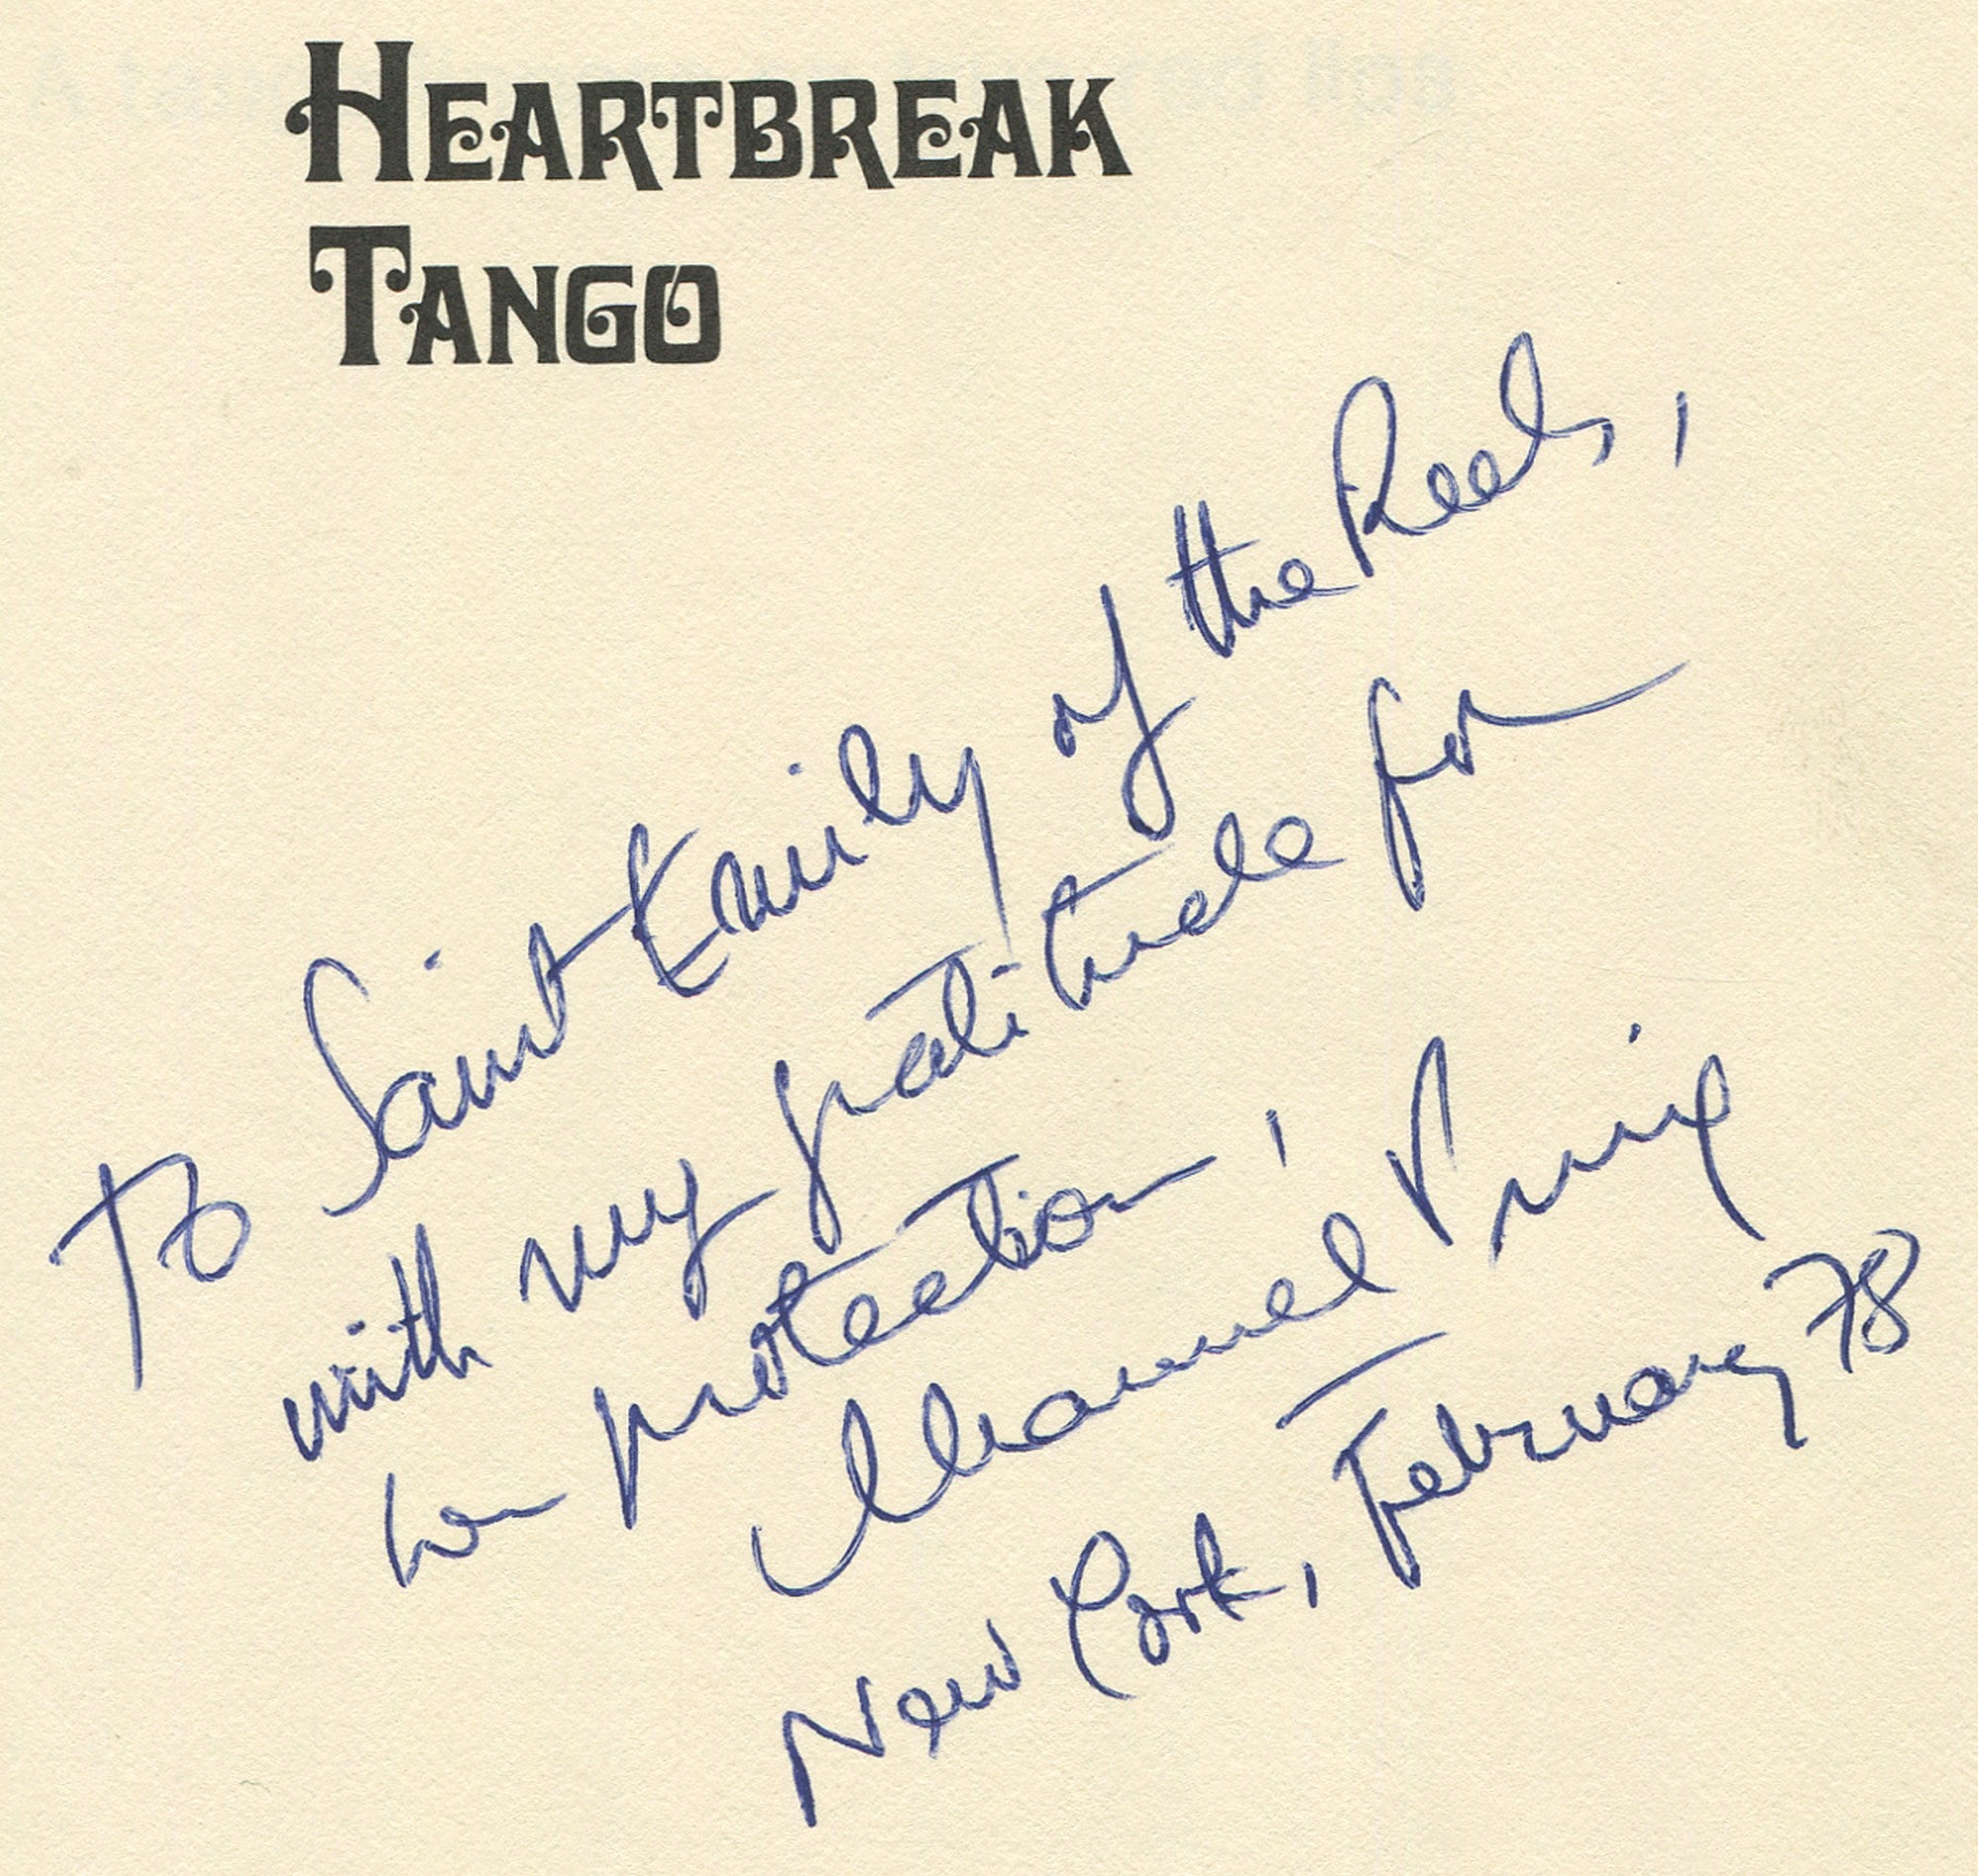 HEARTBREAK
TANGO
To Saint Emily of the Reels,
with my gratitude for
her protection,
Manuel Puig
New York, February 78